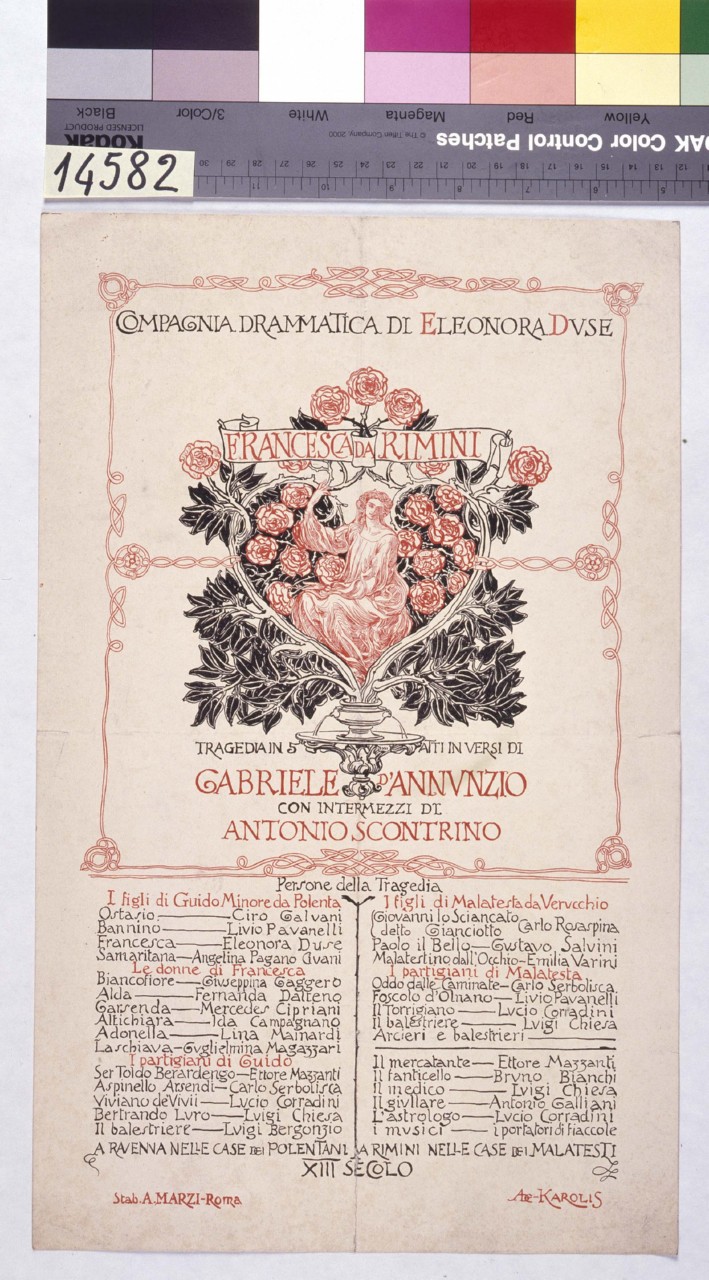 Yellow
Red
Magenta
White
3/Color
Black
© The Tiffen Company, 2000
LICENSED PRODUCT
Kodak
AK Color Control Patches
14582
COMPAGNIA DRAMMATICA DI ELEONORA DVSE
FRANCESCA DA RIMINI
TRAGEDIA IN 5 ATTI IN VERSI DI
GABRIELE D'ANNVNZIO
CON INTERMEZZI DI
ANTONIO SCONTRINO
Persone della Tragedia
I figli di Guido Minore da Polenta
Ostasio — Ciro Galvani
Bannino — Livio Pavanelli
Francesca — Eleonora Duse
Samaritana — Angelina Pagano Avani
Le donne di Francesca
Biancofiore — Giuseppina Gaggero
Alda — Fernanda Dalteno
Garsenda — Mercedes Cipriani
Altichiara — Ida Campagnano
Adonella — Lina Mainardi
La schiava — Gvglielmina Magazzari
I partigiani di Guido
Ser Toldo Berardengo — Ettore Mazzanti
Aspinello Arsendi — Carlo Serbolisca
Viviano de Vivii — Lucio Corradini
Bertrando Lvro — Lvigi Chiesa
Il balestriere — Lvigi Bergonzio
I figli di Malatesta da Vervcchio
Giovanni lo Sciancato
detto Gianciotto Carlo Rosaspina
Paolo il Bello — Gvstavo Salvini
Malatestino dall'Occhio — Emilia Varini
I partigiani di Malatesta
Oddo dalle Caminate — Carlo Serbolisca
Foscolo d'Olnano — Livio Pavanelli
Il Torrigiano — Lvcio Corradini
Il balestriere — Lvigi Chiesa
Arcieri e balestrieri
Il mercatante — Ettore Mazzanti
Il fanticello — Brvno Bianchi
Il medico — Lvigi Chiesa
Il givllare — Antonio Galliani
L'astrologo — Lvcio Corradini
i mvsici — i portatori di fiaccole
A RAVENNA NELLE CASE DEI POLENTANI A RIMINI NELLE CASE DEI MALATESTI
XIII SECOLO
Stab. A. MARZI - Roma
A De - KAROLIS